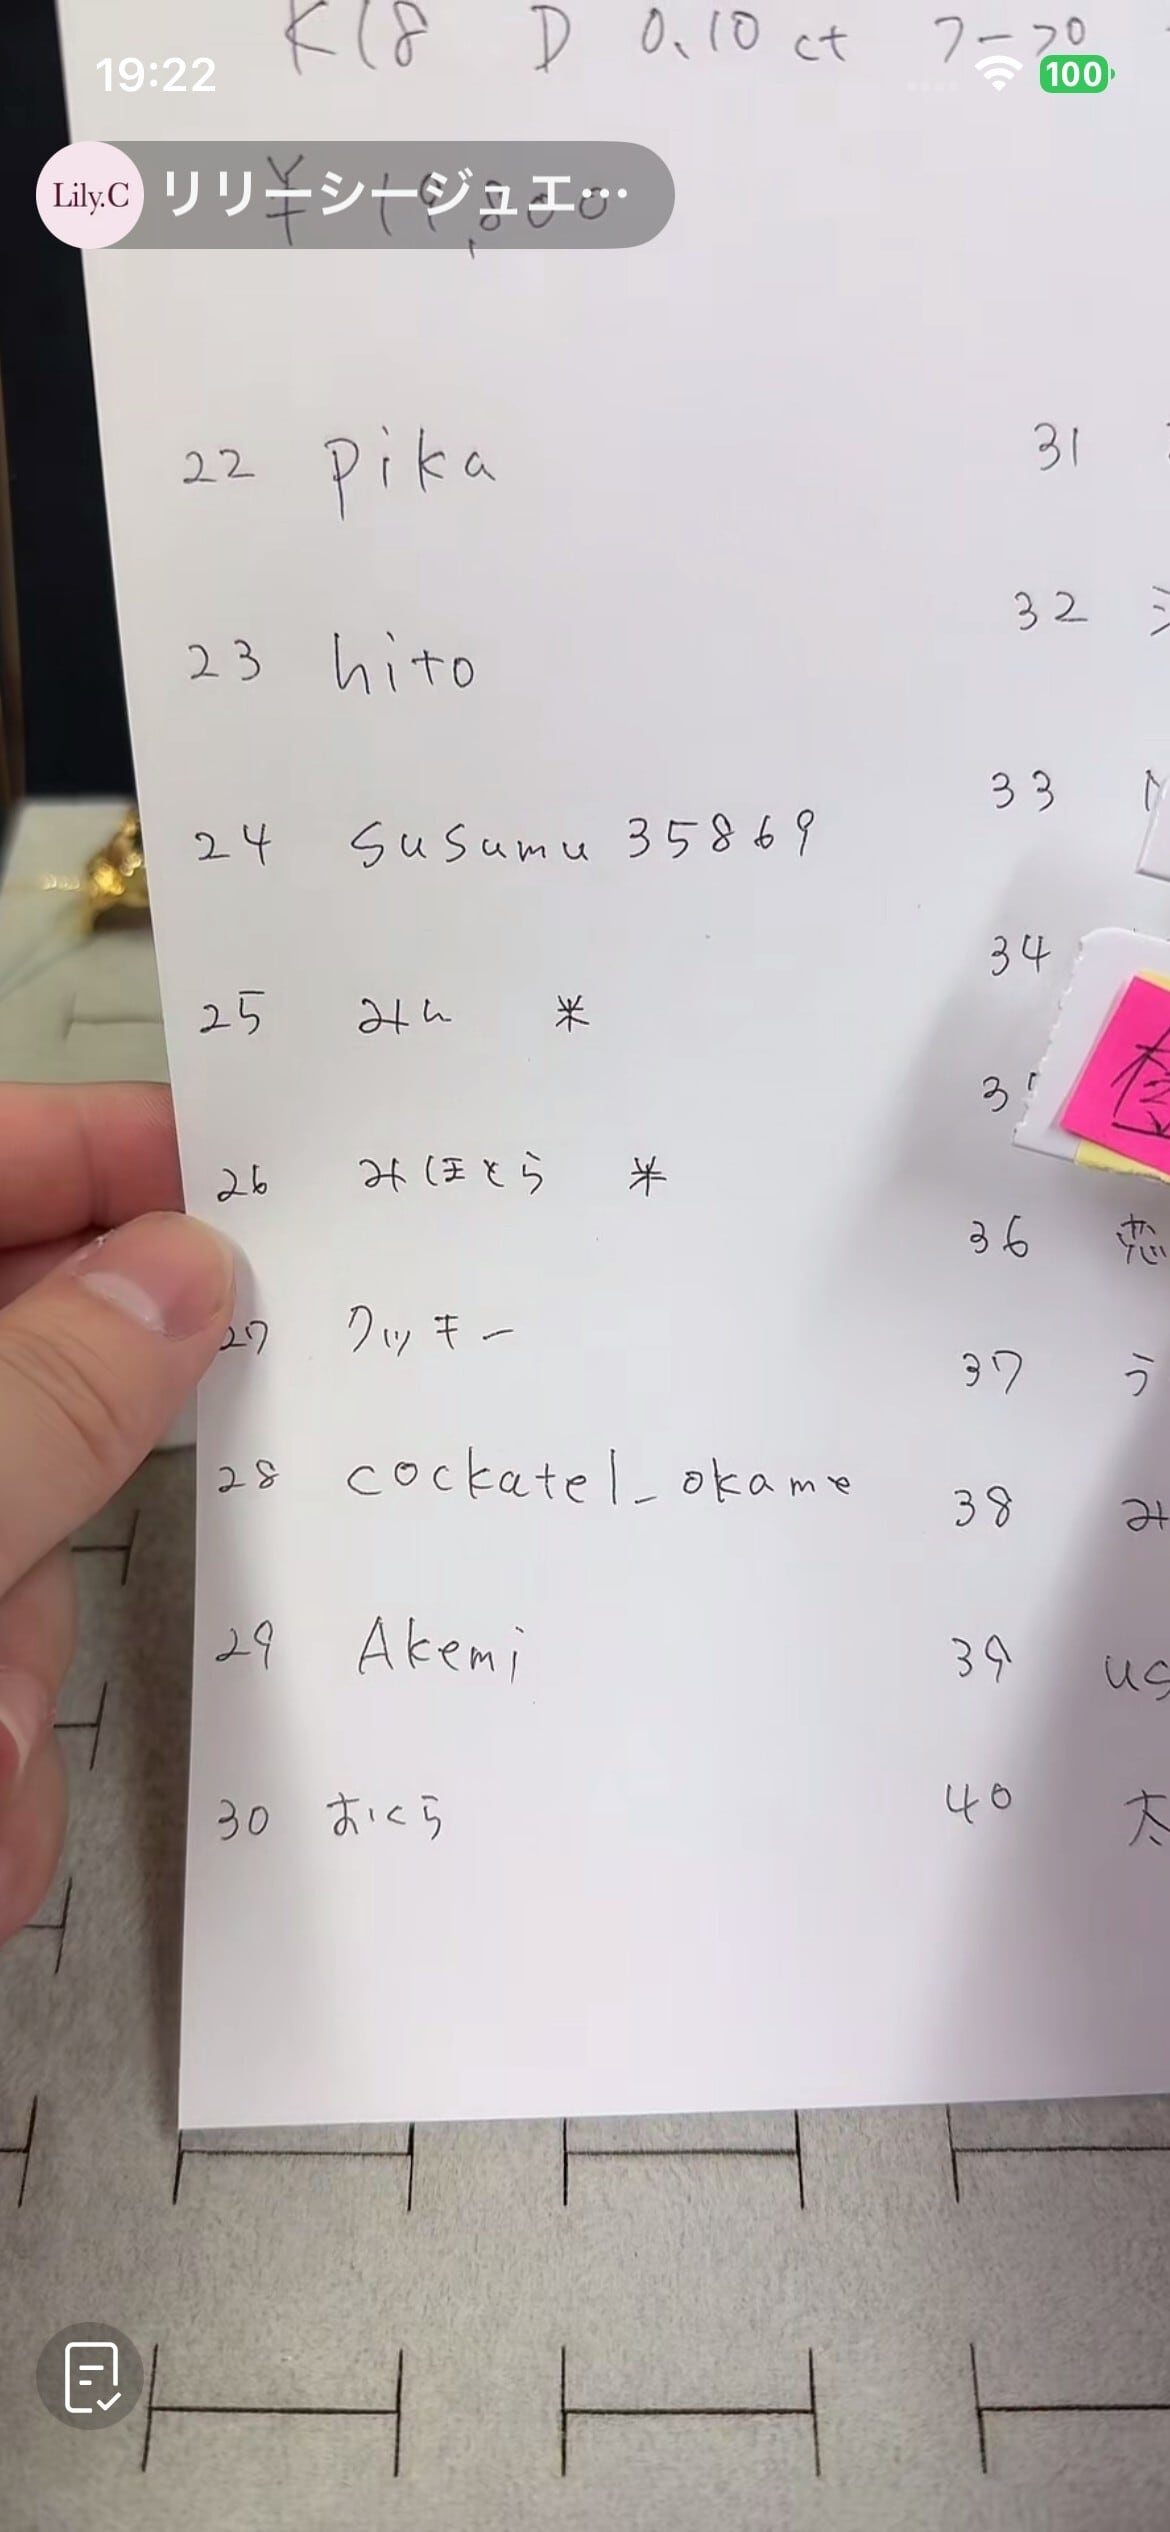 K18 D 0.10ct フープ
19:22
100
Lily.C リリーシージュエ…
¥19,800
22 pika
23 hito
24 Susumu 35869
25 みん ※
26 みほとら ※
27 クッキー
28 cockatel_okame
29 Akemi
30 おくら
31
32
33
34
36 恋
37 う
38 み
39 us
40 太